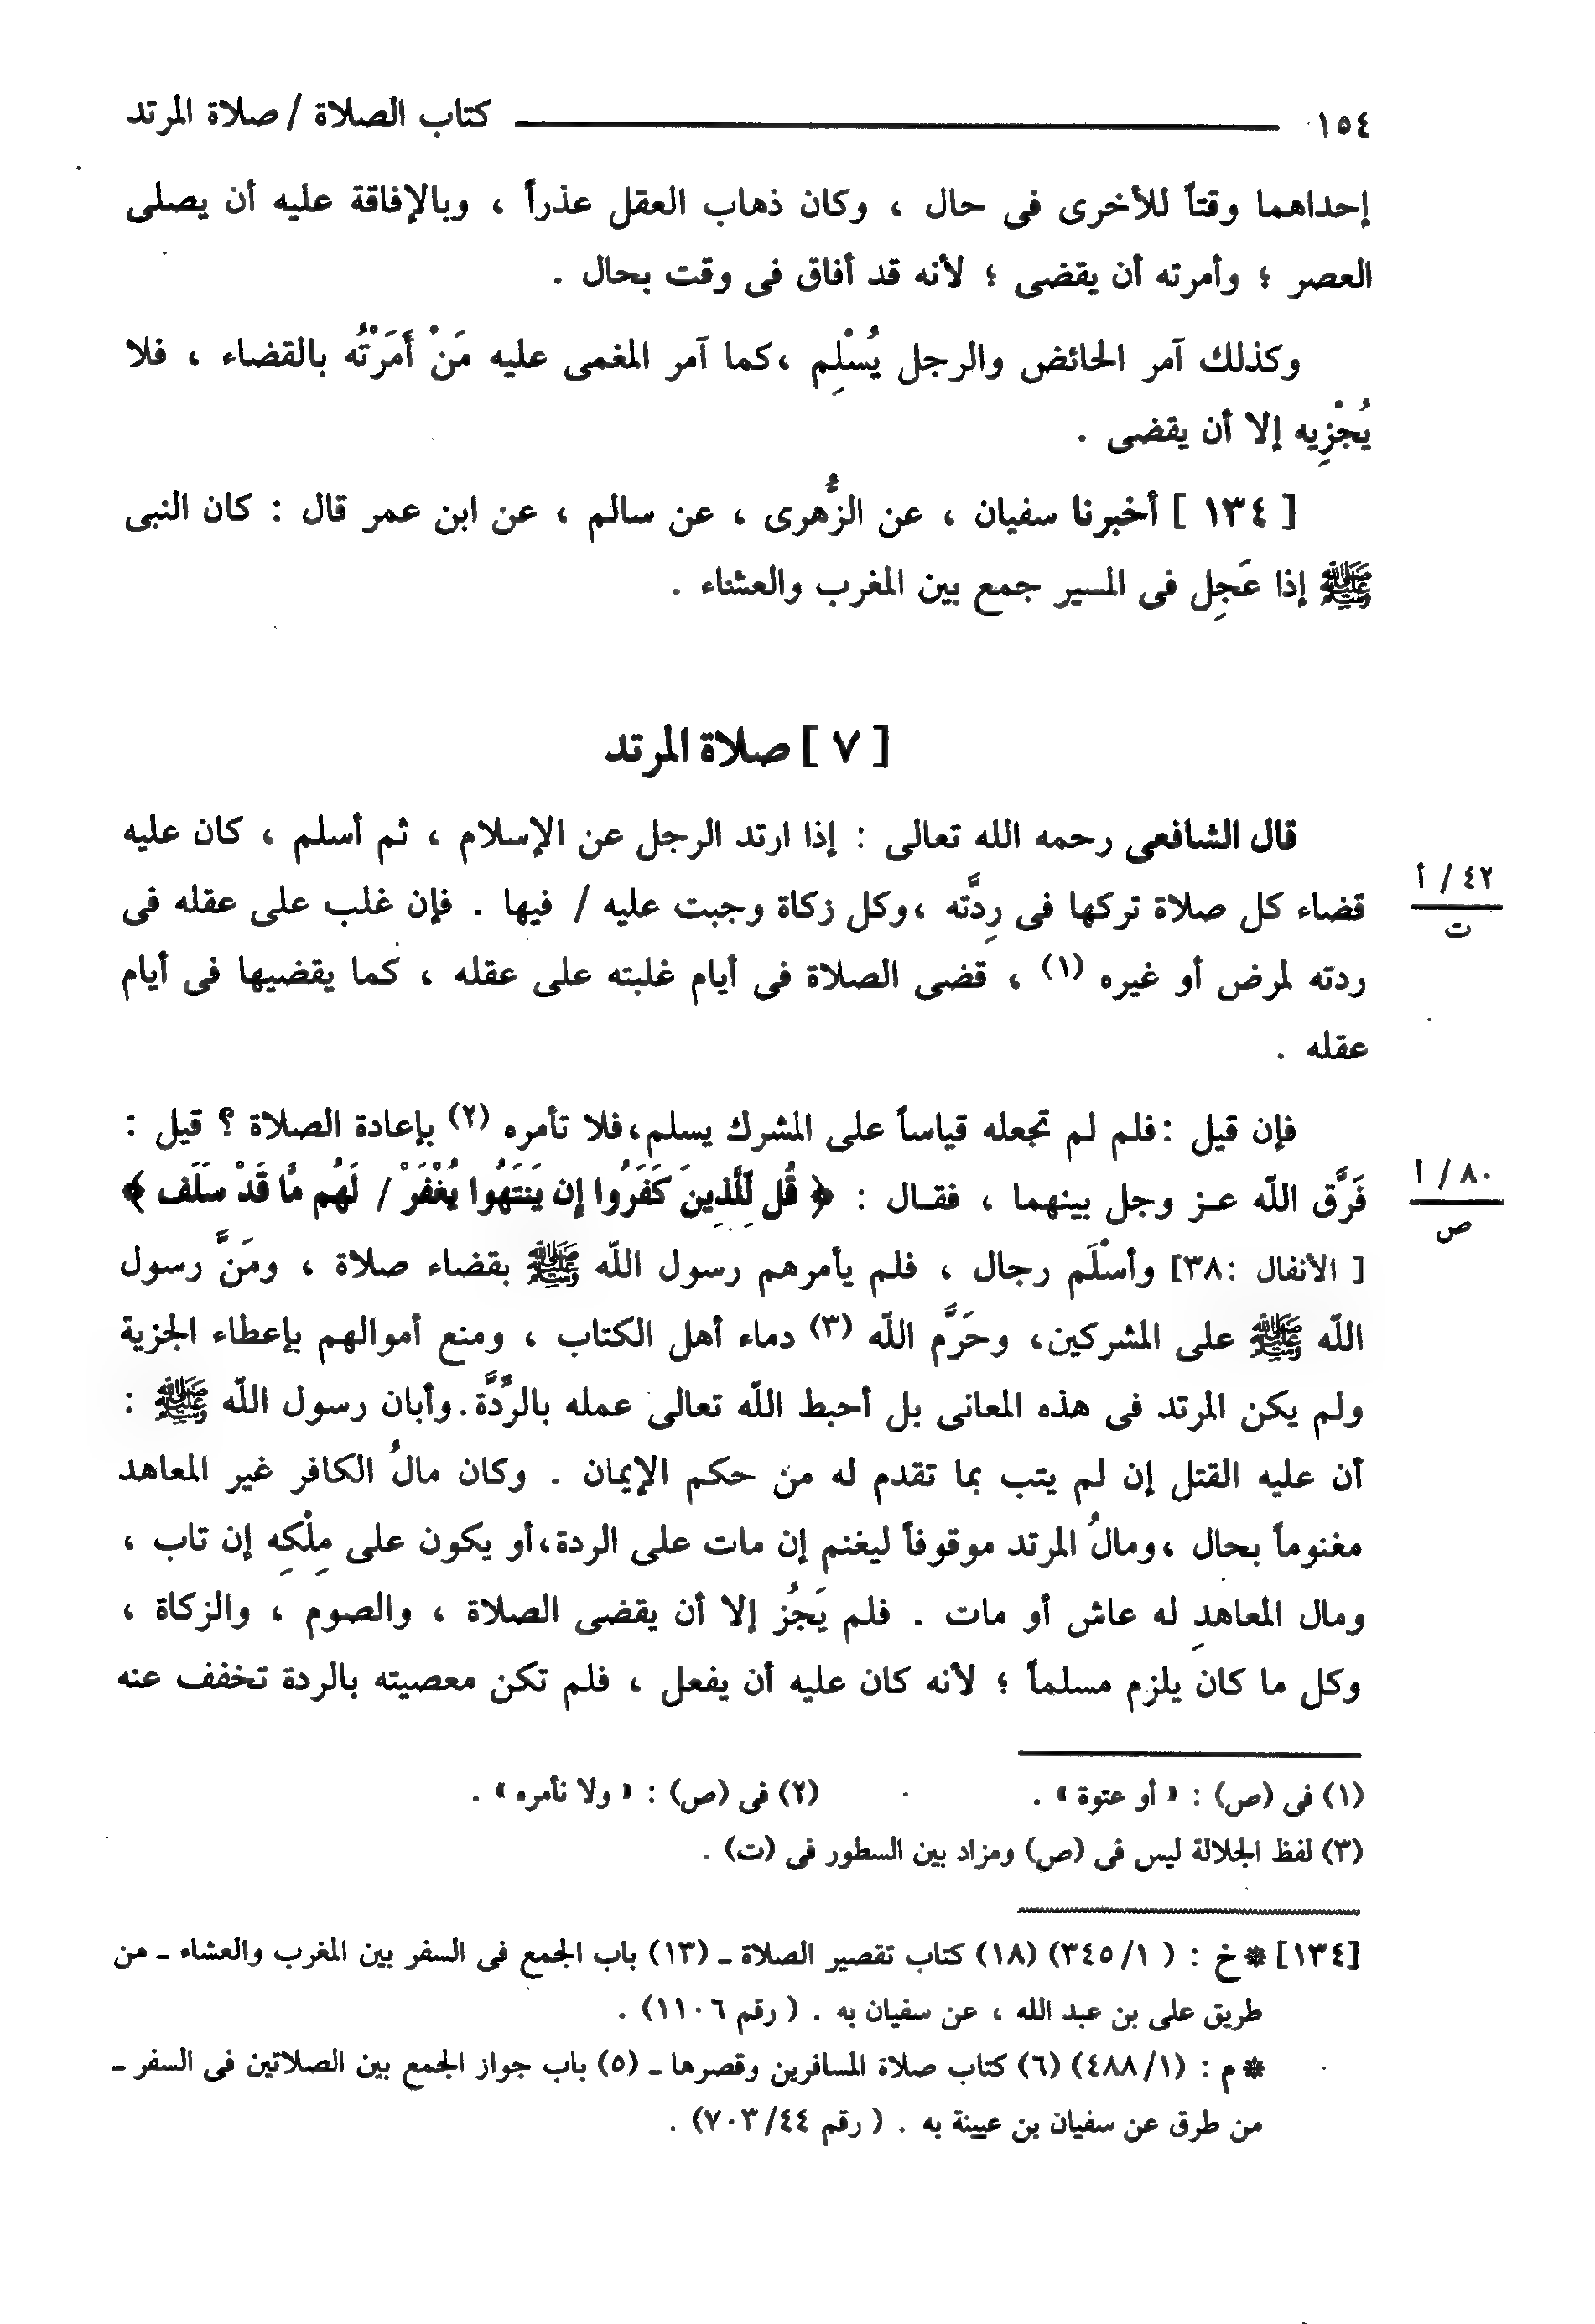 ١٥٤ كتاب الصلاة / صلاة المرتد
إحداهما وقتاً للأخرى فى حال ، وكان ذهاب العقل عذراً ، وبالإفاقة عليه أن يصلى
العصر ؛ وأمرته أن يقضى ؛ لأنه قد أفاق فى وقت بحال .
وكذلك آمر الحائض والرجل يُسْلِم ،كما آمر المغمى عليه مَنْ أَمَرْتُه بالقضاء ، فلا
يُجْزِيه إلا أن يقضى .
[ ١٣٤ ] أخبرنا سفيان ، عن الزُّهرى ، عن سالم ، عن ابن عمر قال : كان النبى
ﷺ إذا عَجِل فى المسير جمع بين المغرب والعشاء .
[ ٧ ] صلاة المرتد
قال الشافعى رحمه الله تعالى : إذا ارتد الرجل عن الإسلام ، ثم أسلم ، كان عليه
قضاء كل صلاة تركها فى رِدَّته ،وكل زكاة وجبت عليه / فيها . فإن غلب على عقله فى
٤٢ / أ
ت
ردته لمرض أو غيره (١) ، قضى الصلاة فى أيام غلبته على عقله ، كما يقضيها فى أيام
عقله .
فإن قيل :فلم لم تجعله قياساً على المشرك يسلم،فلا تأمره (٢) بإعادة الصلاة ؟ قيل :
فَرَّق اللّه عـز وجل بينهما ، فقـال : ﴿ قُل لِّلَّذِينَ كَفَرُوا إِن يَنتَهُوا يُغْفَرْ / لَهُم مَّا قَدْ سَلَف ﴾
٨٠ / أ
ص
[ الأنفال :٣٨] وأسْلَم رجال ، فلم يأمرهم رسول اللّه ﷺ بقضاء صلاة ، ومَنَّ رسول
اللّه ﷺ على المشركين، وحَرَّم اللّه (٣) دماء أهل الكتاب ، ومنع أموالهم بإعطاء الجزية
ولم يكن المرتد فى هذه المعانى بل أحبط اللّه تعالى عمله بالرِّدَّة.وأبان رسول اللّه ﷺ :
أن عليه القتل إن لم يتب بما تقدم له من حكم الإيمان . وكان مالُ الكافر غير المعاهد
مغنوماً بحال ،ومالُ المرتد موقوفاً ليغنم إن مات على الردة،أو يكون على مِلْكِه إن تاب ،
ومال المعاهدِ له عاش أو مات . فلم يَجُز إلا أن يقضى الصلاة ، والصوم ، والزكاة ،
وكل ما كان يلزم مسلماً ؛ لأنه كان عليه أن يفعل ، فلم تكن معصيته بالردة تخفف عنه
(١) فى (ص) : « أو عتوة » . (٢) فى (ص) : « ولا نأمره » .
(٣) لفظ الجلالة ليس فى (ص) ومزاد بين السطور فى (ت) .
[١٣٤] * خ : ( ١/ ٣٤٥) (١٨) كتاب تقصير الصلاة ـ (١٣) باب الجمع فى السفر بين المغرب والعشاء ـ من
طريق على بن عبد الله ، عن سفيان به . ( رقم ١١٠٦) .
* م : (١/ ٤٨٨) (٦) كتاب صلاة المسافرين وقصرها ـ (٥) باب جواز الجمع بين الصلاتين فى السفر ـ
من طرق عن سفيان بن عيينة به . ( رقم ٤٤/ ٧٠٣) .